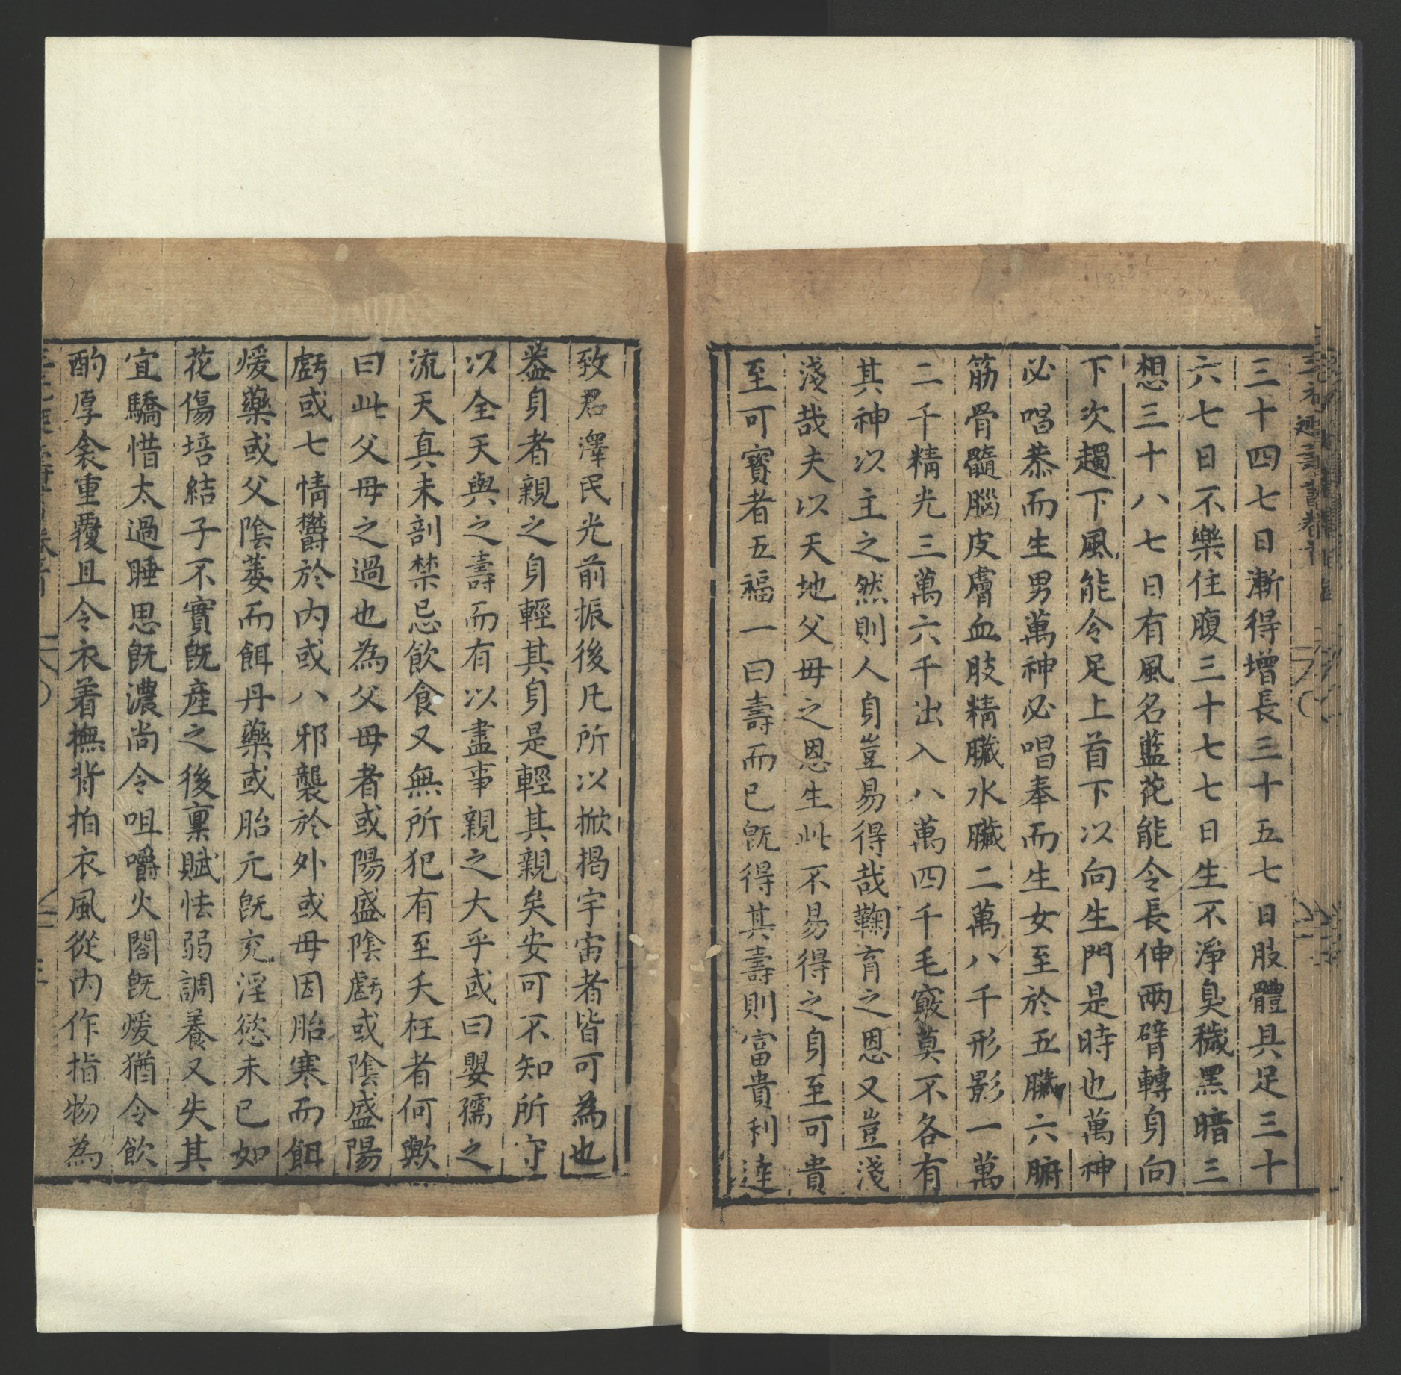 三十四七日漸得增長三十五七日肢體具足三十
六七日不樂住腹三十七七日生不淨臭穢黑暗三
想三十八七日有風名藍花能令長伸兩臂轉身向
下次趨下風能令足上首下以向生門是時也萬神
必唱恭而生男萬神必唱奉而生女至於五臟六腑
筋骨髓腦皮膚血肢精臟水臟二萬八千形影一萬
二千精光三萬六千出入八萬四千毛竅莫不各有
其神以主之然則人身豈易得哉鞠育之恩又豈淺
淺哉夫以天地父母之恩生此不易得之身至可貴
至可寶者五福一曰壽而已旣得其壽則富貴利達
致君澤民光前振後凡所以掀揭宇宙者皆可為也
蓋身者親之身輕其身是輕其親矣安可不知所守
以全天與之壽而有以盡事親之大乎或曰嬰孺之
流天真未剖禁忌飲食又無所犯有至夭枉者何歟
曰此父母之過也為父母者或陽盛陰虧或陰盛陽
虧或七情鬱於內或八邪襲於外或母因胎寒而餌
煖藥或父陰萎而餌丹藥或胎元旣充淫慾未已如
花傷培結子不實旣產之後稟賦怯弱調養又失其
宜驕惜太過睡思旣濃尚令咀嚼火閤旣煖猶令飲
酌厚衾重覆且令衣着撫背拍衣風從內作指物為